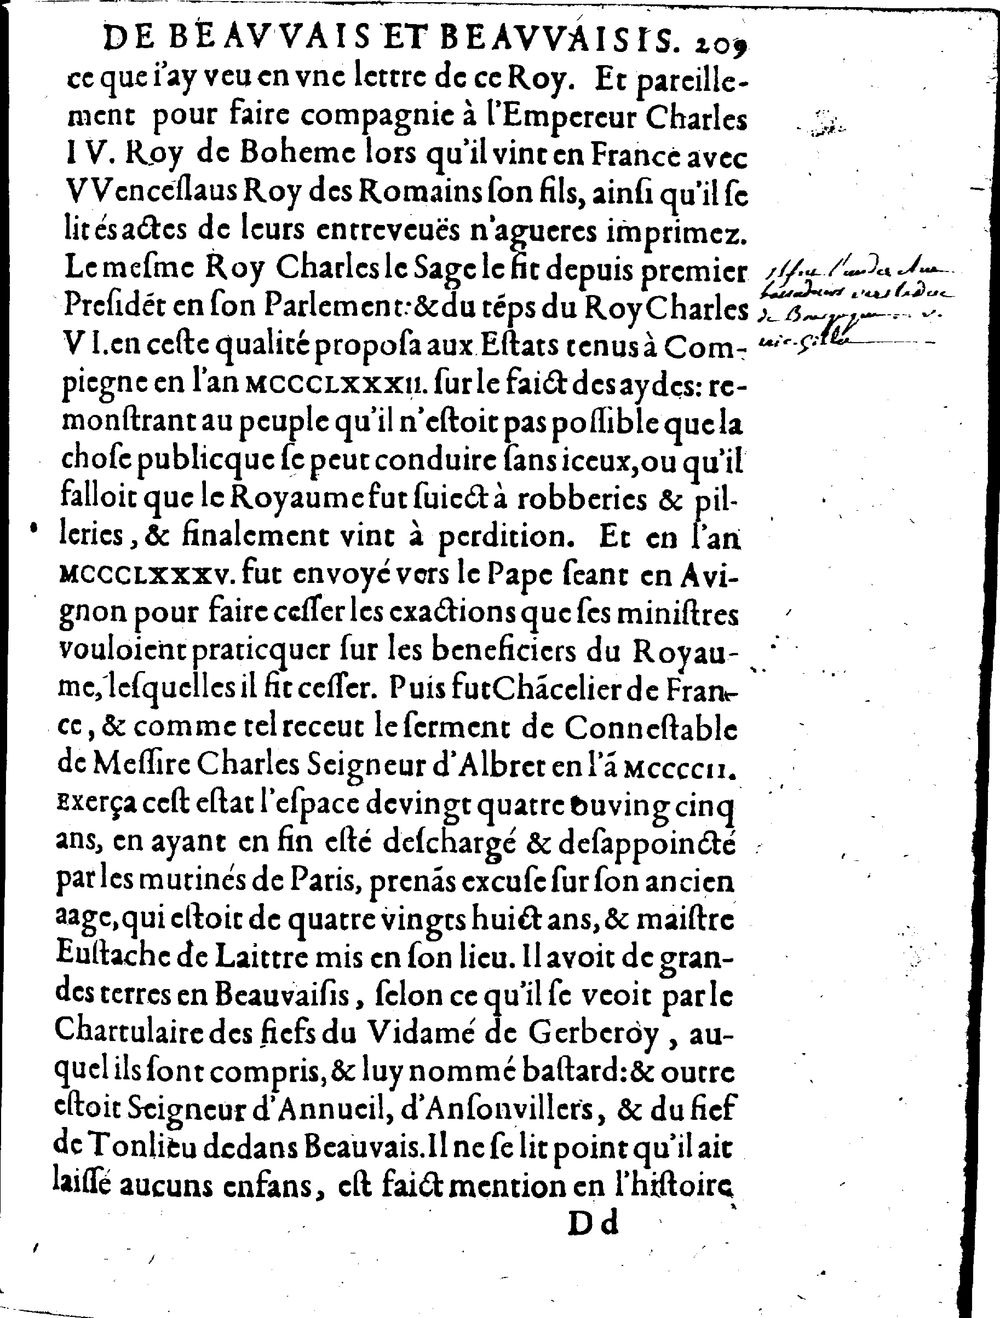 DE BEAVVAIS ET BEAVVAISIS. 209
ce que i'ay veu en vne lettre de ce Roy. Et pareille-
ment pour faire compagnie à l'Empereur Charles
IV. Roy de Boheme lors qu'il vint en France avec
VVenceſlaus Roy des Romains ſon fils, ainſi qu'il ſe
lit és actes de leurs entreveuës n'agueres imprimez.
Le meſme Roy Charles le Sage le fit depuis premier
Preſidẽt en ſon Parlement: & du tẽps du Roy Charles
VI. en ceſte qualité propoſa aux Eſtats tenus à Com-
piegne en l'an MCCCLXXXII. ſur le faict des aydes: re-
monſtrant au peuple qu'il n'eſtoit pas poſſible que la
choſe publicque ſe peut conduire ſans iceux, ou qu'il
falloit que le Royaume fut ſuiect à robberies & pil-
leries, & finalement vint à perdition. Et en l'an
MCCCLXXXV. fut envoyé vers le Pape ſeant en Avi-
gnon pour faire ceſſer les exactions que ſes miniſtres
vouloient praticquer ſur les beneficiers du Royau-
me, leſquelles il fit ceſſer. Puis fut Chãcelier de Fran-
ce, & comme tel receut le ſerment de Conneſtable
de Meſſire Charles Seigneur d'Albret en l'ã MCCCCII.
Exerça ceſt eſtat l'eſpace de vingt quatre ou ving cinq
ans, en ayant en fin eſté deſchargé & deſappoincté
par les mutinés de Paris, prenãs excuſe ſur ſon ancien
aage, qui eſtoit de quatre vingts huict ans, & maiſtre
Euſtache de Laittre mis en ſon lieu. Il avoit de gran-
des terres en Beauvaiſis, ſelon ce qu'il ſe veoit par le
Chartulaire des fiefs du Vidamé de Gerberoy, au-
quel ils ſont compris, & luy nommé baſtard: & outre
eſtoit Seigneur d'Annueil, d'Anſonvillers, & du fief
de Tonlieu dedans Beauvais. Il ne ſe lit point qu'il ait
laiſſé aucuns enfans, eſt faict mention en l'hiſtoire
Dd